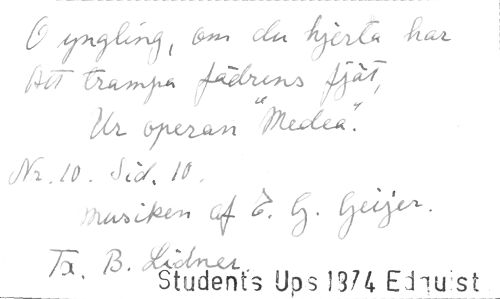 O yngling, om du hjerta har
Att trampa fädrens fjät,
Ur operan "Medea".
Nr. 10. Sid. 10.
musiken af E. G. Geijer.
Tx. B. Lidner
Students Ups 1874 Edquist